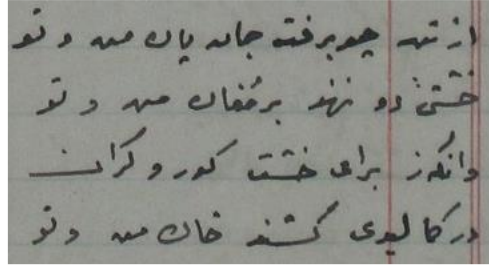 از تن چو برفت جان پاک من و تو
خشتی دو نهند بر مغاک من و تو
وانگه ز برای خشت گور دگران
در کالبدی کشند خاک من و تو